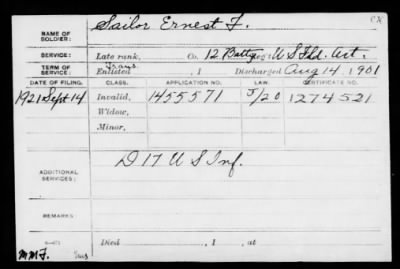 CA
NAME OF SOLDIER: Sailor Ernest F.
SERVICE: Late rank, Co. 12 Batty Reg't U S Fld. Art.
TERM OF SERVICE: Enlisted , 1 Discharged Aug 14, 1901
DATE OF FILING. CLASS. APPLICATION NO. LAW. CERTIFICATE NO.
1921 Sept 14 Invalid, 1455571 J/20 1274521
Widow,
Minor,
D 17 U S Inf.
ADDITIONAL SERVICES:
REMARKS
Died , 1 , at